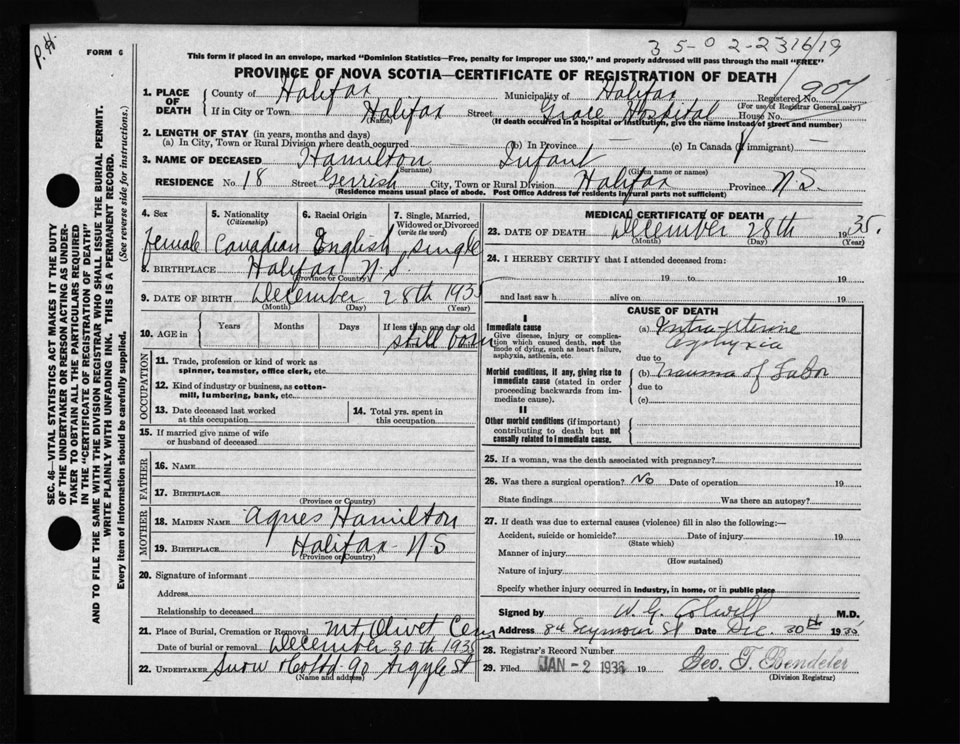 P.H.
FORM 6
This form if placed in an envelope, marked "Dominion Statistics—Free, penalty for improper use $300," and properly addressed will pass through the mail "FREE"
35-02-2316/19
PROVINCE OF NOVA SCOTIA—CERTIFICATE OF REGISTRATION OF DEATH
907
1. PLACE OF DEATH
County of Halifax Municipality of Halifax Registered No.
(For use of Registrar General only)
If in City or Town Halifax Street Grace Hospital House No.
(Name) (If death occurred in a hospital or institution, give the name instead of street and number)
2. LENGTH OF STAY (in years, months and days)
(a) In City, Town or Rural Division where death occurred (b) In Province — (c) In Canada (if immigrant) —
3. NAME OF DECEASED Hamilton Infant
(Surname) (Given name or names)
RESIDENCE No. 18 Street Gerrish City, Town or Rural Division Halifax Province N.S.
(Residence means usual place of abode. Post Office Address for residents in rural parts not sufficient)
4. Sex
female
5. Nationality
(Citizenship)
Canadian
6. Racial Origin
English
7. Single, Married, Widowed or Divorced
(write the word)
single
8. BIRTHPLACE Halifax N.S.
(Province or Country)
9. DATE OF BIRTH December 28th 1935
(Month) (Day) (Year)
10. AGE in
Years Months Days If less than one day old
still born
OCCUPATION
11. Trade, profession or kind of work as spinner, teamster, office clerk, etc.
12. Kind of industry or business, as cotton-mill, lumbering, bank, etc.
13. Date deceased last worked at this occupation
14. Total yrs. spent in this occupation
15. If married give name of wife or husband of deceased
FATHER
16. NAME
17. BIRTHPLACE
(Province or Country)
MOTHER
18. MAIDEN NAME Agnes Hamilton
19. BIRTHPLACE Halifax N S
(Province or Country)
20. Signature of informant
Address
Relationship to deceased
21. Place of Burial, Cremation or Removal Mt. Olivet Cem
Date of burial or removal December 30th 1935
22. UNDERTAKER Snow & Co Ltd 90 Argyle St
(Name and address)
MEDICAL CERTIFICATE OF DEATH
23. DATE OF DEATH December 28th 1935.
(Month) (Day) (Year)
24. I HEREBY CERTIFY that I attended deceased from:
19 to 19
and last saw h alive on 19
CAUSE OF DEATH
I
Immediate cause
Give disease, injury or complication which caused death, not the mode of dying, such as heart failure, asphyxia, asthenia, etc.
(a) Intra-uterine
asphyxia
due to
Morbid conditions, if any, giving rise to immediate cause (stated in order proceeding backwards from immediate cause).
(b) Trauma of Labor
due to
(c)
II
Other morbid conditions (if important) contributing to death but not causally related to immediate cause.
25. If a woman, was the death associated with pregnancy?
26. Was there a surgical operation? No Date of operation 19
State findings Was there an autopsy?
27. If death was due to external causes (violence) fill in also the following:—
Accident, suicide or homicide? Date of injury 19
(State which)
Manner of injury
(How sustained)
Nature of injury
Specify whether injury occurred in industry, in home, or in public place
Signed by W. G. Colwell M.D.
Address 84 Seymour St Date Dec. 30th 1935
28. Registrar's Record Number
29. Filed JAN -2 1936 19 Geo. T. Bendeler
(Division Registrar)
SEC. 46—VITAL STATISTICS ACT MAKES IT THE DUTY
OF THE UNDERTAKER OR PERSON ACTING AS UNDER-
TAKER TO OBTAIN ALL THE PARTICULARS REQUIRED
IN THE "CERTIFICATE OF REGISTRATION OF DEATH"
AND TO FILE THE SAME WITH THE DIVISION REGISTRAR WHO SHALL ISSUE THE BURIAL PERMIT.
WRITE PLAINLY WITH UNFADING INK. THIS IS A PERMANENT RECORD.
Every item of information should be carefully supplied. (See reverse side for instructions.)